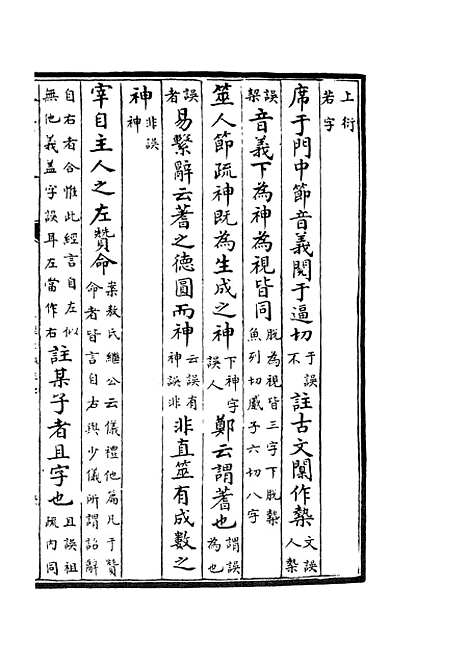 上衍
若字
席于門中節音義閾于逼切 于誤不 註古文闑作槷 文誤人槷
誤槷 音義下為神為視皆同 脫為視皆三字下脫槷魚列切蹙子六切八字
筮人節疏神既為生成之神 下神字誤人 鄭云謂蓍也 謂誤為也
誤者 易繫辭云蓍之德圓而神 云誤有神誤非 非直筮有成數之
神 非誤神
宰自主人之左贊命 案敖氏繼公云儀禮他篇凡于贊命者皆言自右與少儀所謂詔辭
自右者合惟此經言自左似無他義盖字誤耳左當作右 註某子者且字也 且誤祖疏内同